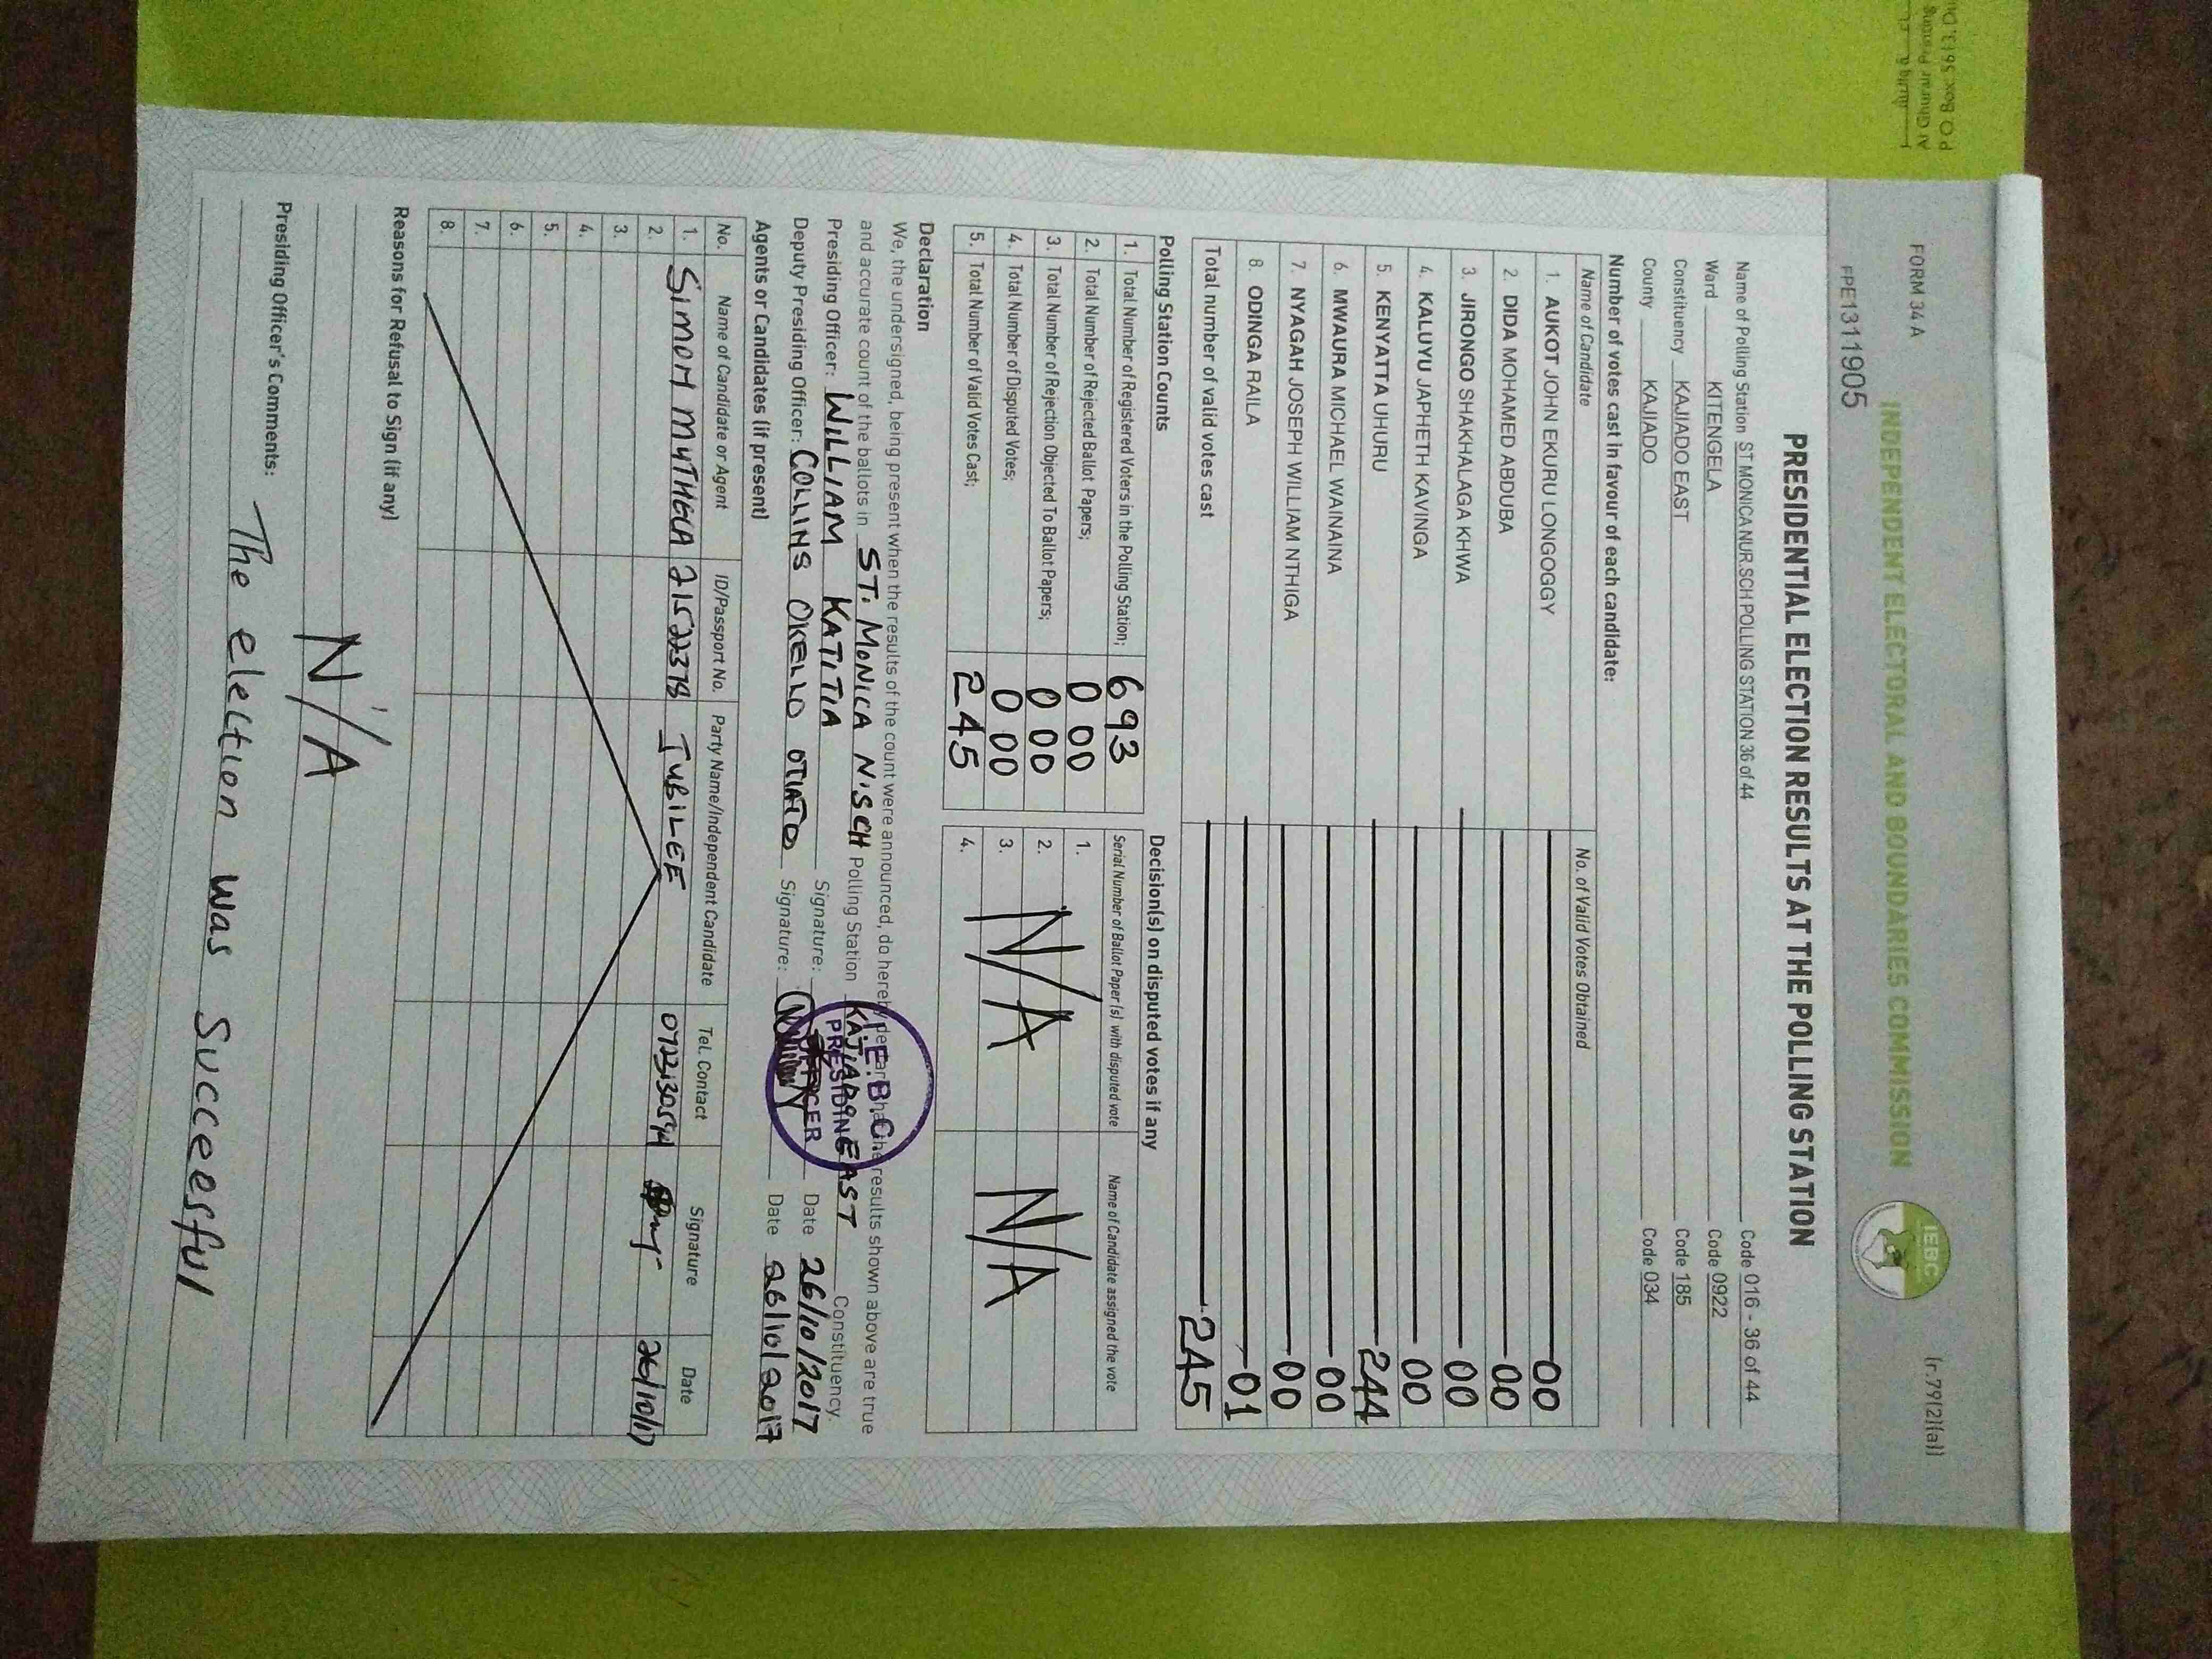 P O Box: 5613, Du
Al Ghurair Printing
FORM 34 A
(r.79(2)(a))
INDEPENDENT ELECTORAL AND BOUNDARIES COMMISSION
IEBC
FPE1311905
PRESIDENTIAL ELECTION RESULTS AT THE POLLING STATION
Name of Polling Station ST MONICA NUR.SCH POLLING STATION 36 of 44 Code 016 - 36 of 44
Ward KITENGELA Code 0922
Constituency KAJIADO EAST Code 185
County KAJIADO Code 034
Number of votes cast in favour of each candidate:
Name of Candidate No. of Valid Votes Obtained
1. AUKOT JOHN EKURU LONGOGGY 00
2. DIDA MOHAMED ABDUBA 00
3. JIRONGO SHAKHALAGA KHWA 00
4. KALUYU JAPHETH KAVINGA 00
5. KENYATTA UHURU 244
6. MWAURA MICHAEL WAINAINA 00
7. NYAGAH JOSEPH WILLIAM NTHIGA 00
8. ODINGA RAILA 01
Total number of valid votes cast 245
Polling Station Counts
1. Total Number of Registered Voters in the Polling Station; 693
2. Total Number of Rejected Ballot Papers; 0 00
3. Total Number of Rejection Objected To Ballot Papers; 0 00
4. Total Number of Disputed Votes; 0 00
5. Total Number of Valid Votes Cast; 245
Decision(s) on disputed votes if any
Serial Number of Ballot Paper(s) with disputed vote Name of Candidate assigned the vote
1.
2. N/A N/A
3.
4.
Declaration
We, the undersigned, being present when the results of the count were announced, do hereby declare that the results shown above are true
and accurate count of the ballots in ST. MONICA N'SCH Polling Station KAJIADO EAST Constituency
Presiding Officer: WILLIAM KATITIA Signature: Date 26/10/2017
Deputy Presiding Officer: COLLINS OKELLO OTIATO Signature: Date 26/10/2017
I.E.B.C
PRESIDING
OFFICER
Agents or Candidates (if present)
No. Name of Candidate or Agent ID/Passport No. Party Name/Independent Candidate Tel. Contact Signature Date
1. SIMON MUTHEGA 21522378 JUBILEE 26/10/17
2.
3.
4.
5.
6.
7.
8.
Reasons for Refusal to Sign (if any)
N/A
Presiding Officer's Comments: The election was Succeesful